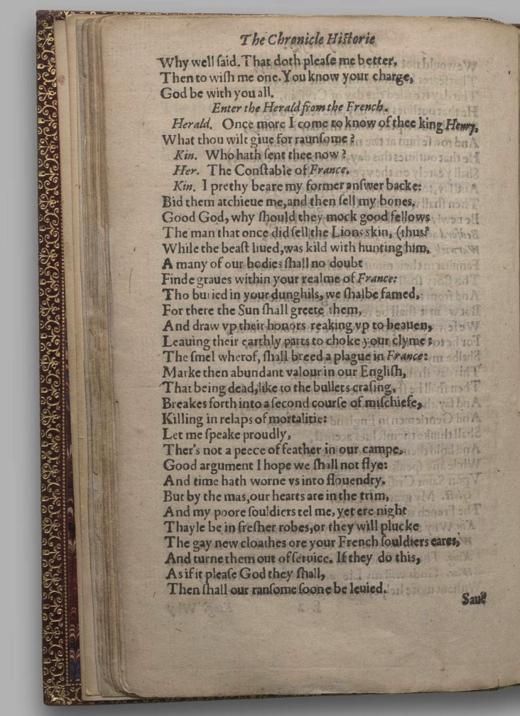 The Chronicle Historie
Why well said. That doth please me better,
Then to wish me one. You know your charge,
God be with you all.
Enter the Herald from the French.
Herald. Once more I come to know of thee king Henry,
What thou wilt giue for raunsome?
Kin. Who hath sent thee now?
Her. The Constable of France.
Kin. I prethy beare my former answer backe:
Bid them atchieue me, and then sell my bones,
Good God, why should they mock good fellows
The man that once did sell the Lions skin, (thus?
While the beast liued, was kild with hunting him,
A many of our bodies shall no doubt
Finde graues within your realme of France:
Tho buried in your dunghils, we shalbe famed,
For there the Sun shall greete them,
And draw vp their honors reaking vp to heauen,
Leauing their earthly parts to choke your clyme:
The smel wherof, shall breed a plague in France:
Marke then abundant valour in our English,
That being dead, like to the bullets crasing,
Breakes forth into a second course of mischiefe,
Killing in relaps of mortalitie:
Let me speake proudly,
Ther's not a peece of feather in our campe,
Good argument I hope we shall not flye:
And time hath worne vs into slouendry.
But by the mas, our hearts are in the trim,
And my poore souldiers tel me, yet ere night
Thayle be in fresher robes, or they will plucke
The gay new cloathes ore your French souldiers eares,
And turne them out of seruice. If they do this,
As if it please God they shall,
Then shall our ransome soone be leuied.
Saue